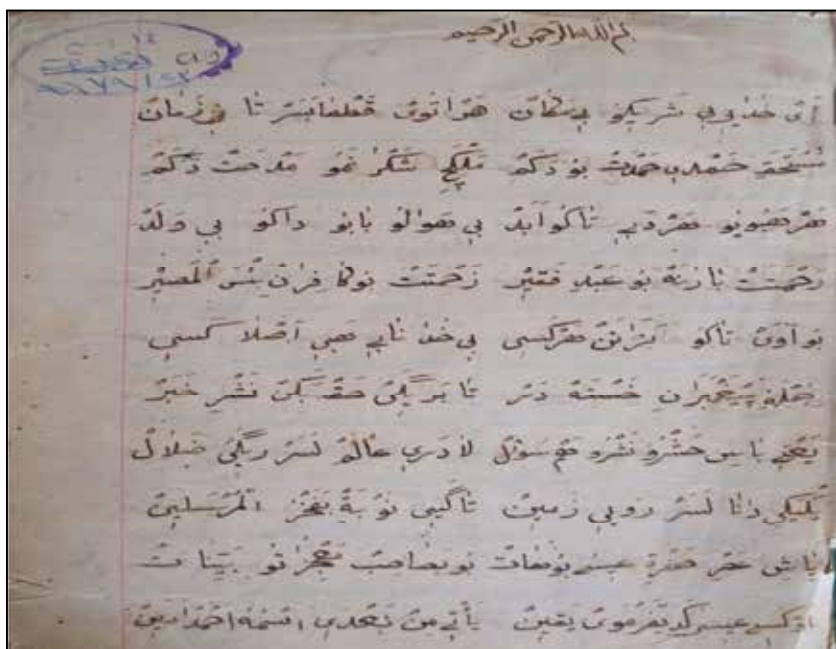 بسم الله الرحمن الرحيم
أى خدايى بى شريكو بى مكان هراتوى قطعا بسر تا بى زمان
مستحق حمد بى حمدت بو دكم ملكچ شكر نمو مدحت دكم
هر هبويو هر دبى تاكو ابد بى هوالو بابو داكو بى ولد
رحمتت بارنه بو عبد فقير زحمتت بو كافران بئس المصير
بو اوى تاكو بزانن هر كسى بى خدا نابى هبى اصلا كسى
جمله پيغمبران خستنه در تا بريگى حق بكن نشر خبر
يعنى باس حشر و نشر و هم سؤال لادرى عالم لسر ريگى ضلال
يك يكى دانا لسر رويى زمين تاكهى نوبة بفخر المرسلين
پاش حضرة عيسى بو صاحب معجزات و بينات
عيسى كو يفرموى يقين يأتى من بعدى اسمه احمد امين